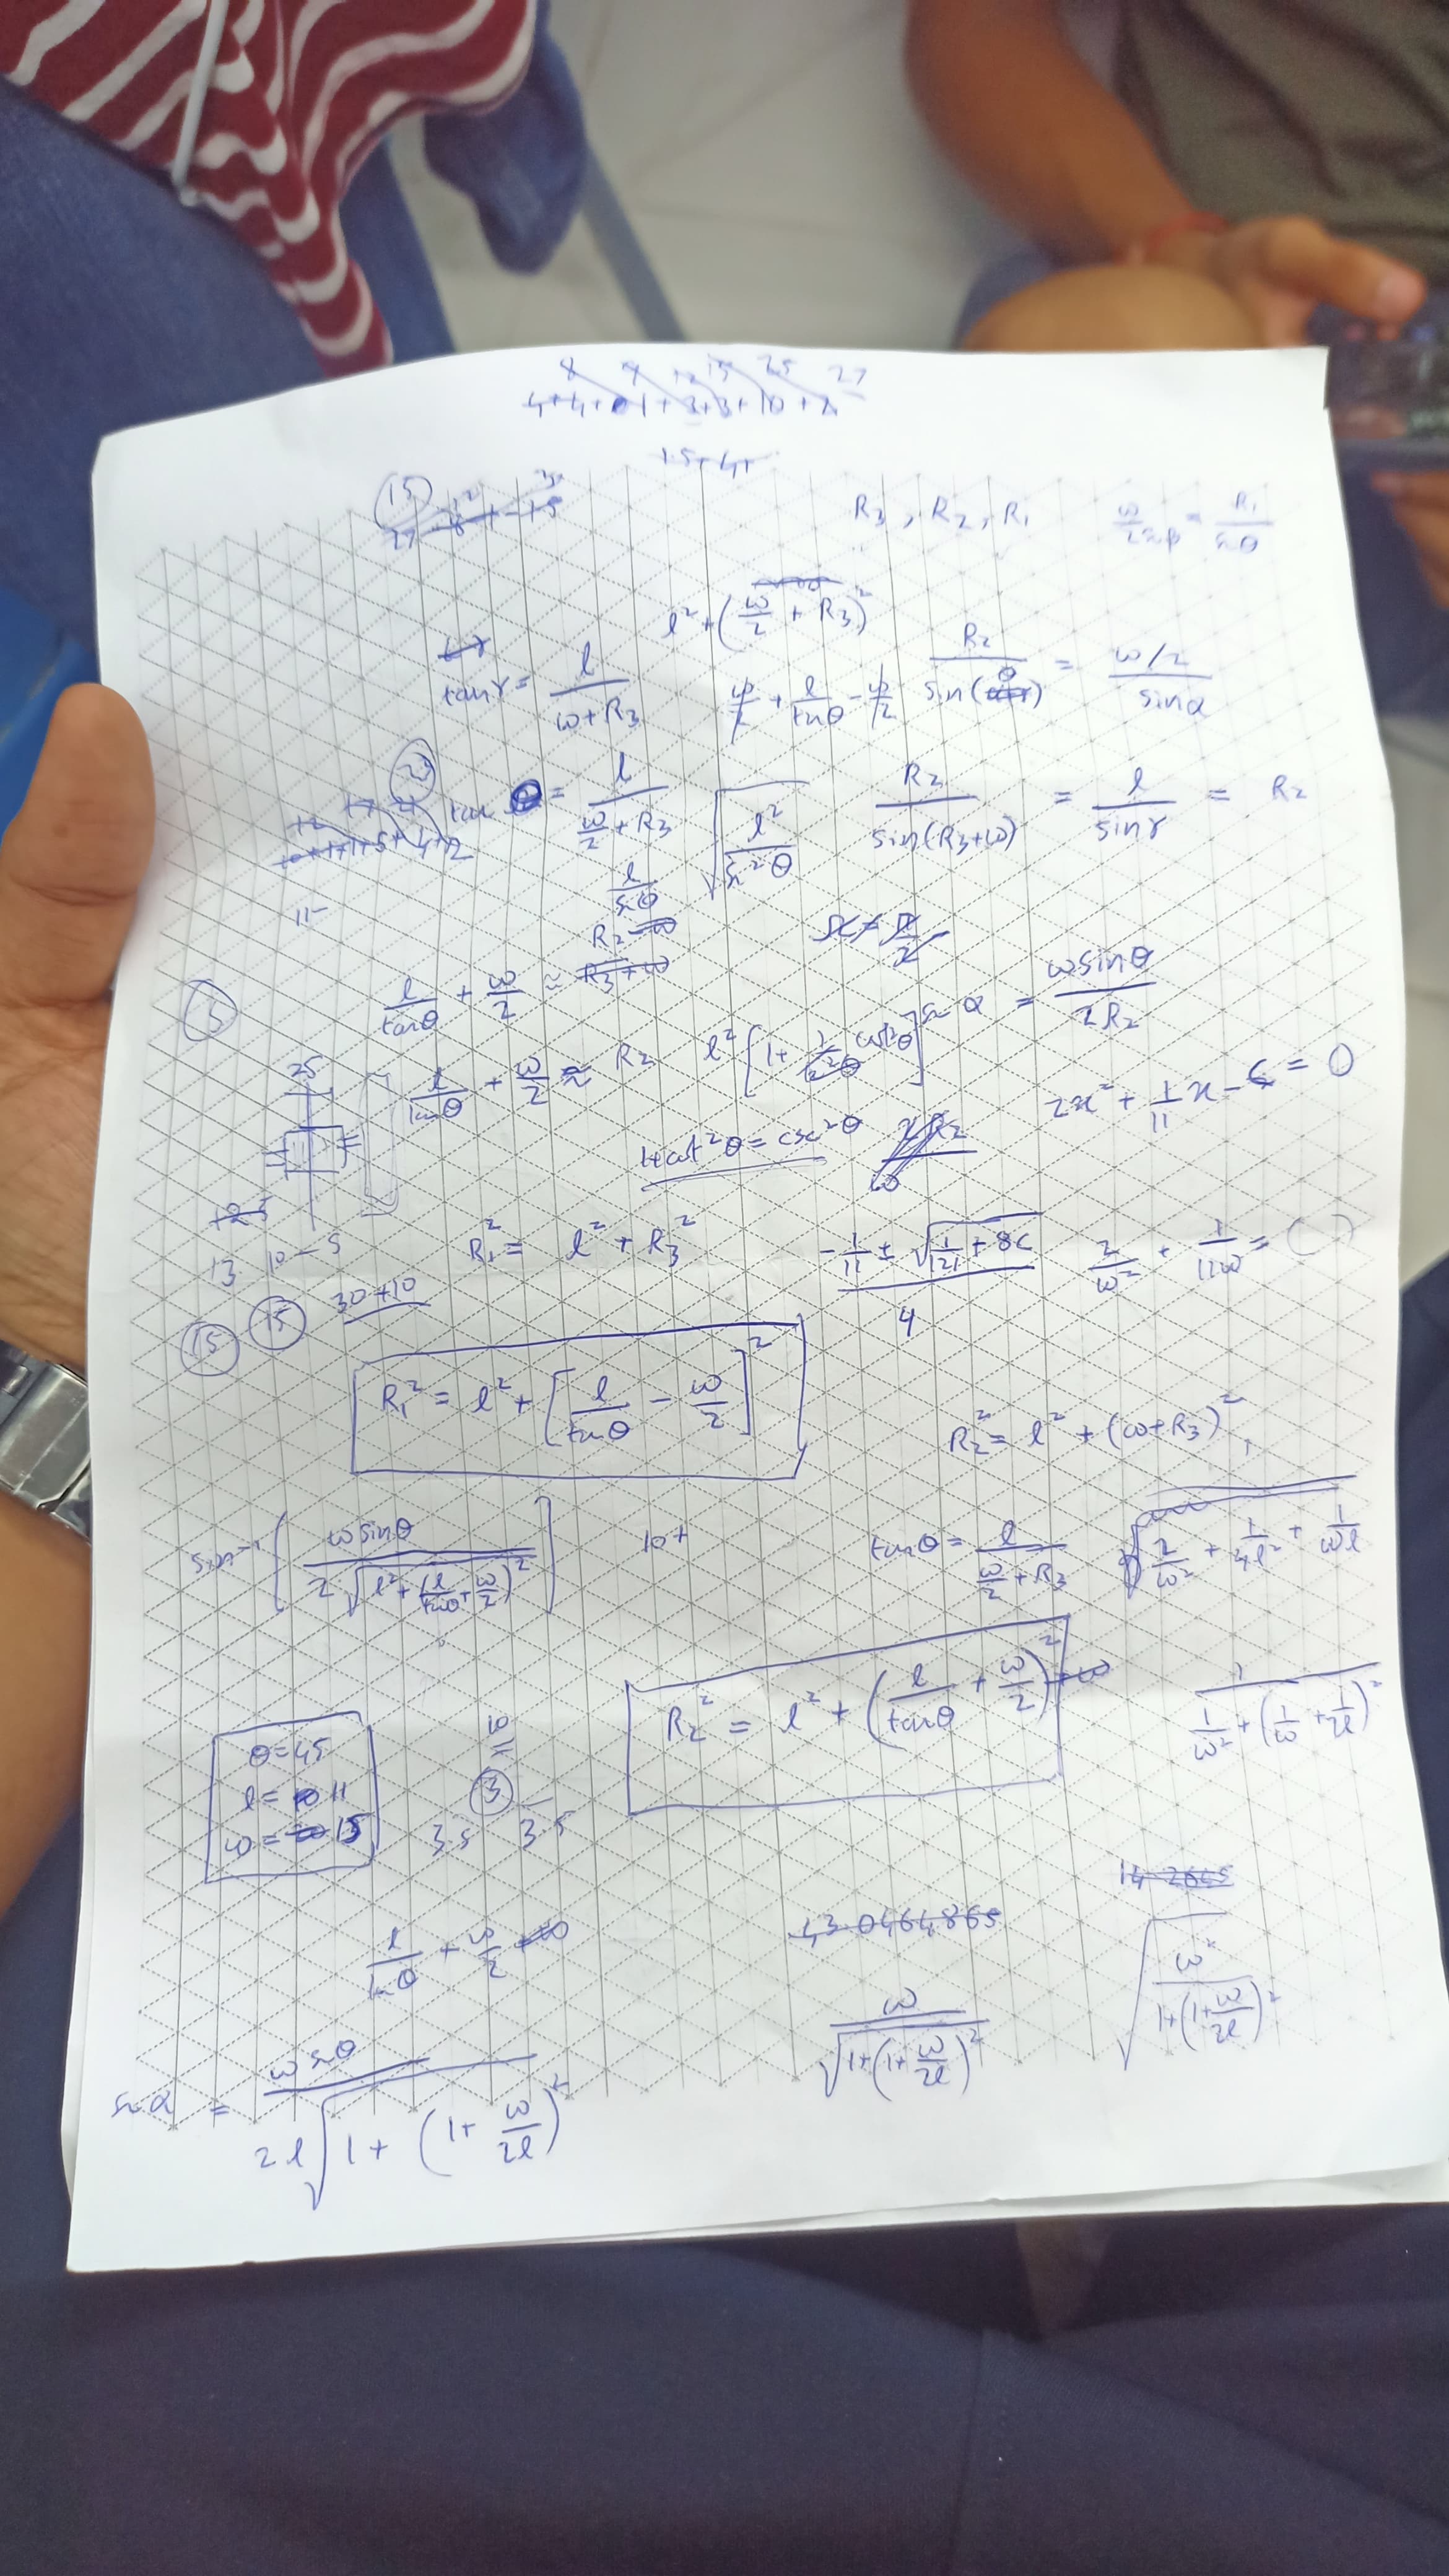 8 9 12 15 25 27
4+4+1+3+3+10+2
1.5+4+
(15)
27
R₃, R₂, R₁
ω/(2 sin β) = R₁/(sin θ)
l² + (ω/2 + R₃)²
tan γ = l/(ω+R₃)
ω/2 + l/tan θ − ω/2
R₂/sin(θ) = (ω/2)/sin α
tan θ = l/(ω/2 + R₃)
√(l²/sin²θ)
R₂/sin(R₃+ω) = l/sin γ = R₂
l/sin θ
11−
R₂ − ω
R₃ + ω
l/tan θ + ω/2 ≈
sin α = ω sin θ/(2R₂)
25
l/tan θ + ω/2 ≈ R₂
l²[1 + cot²θ]
2x² + (1/11)x − C = 0
1+cot²θ = csc²θ
2R₂/ω
12.5
13 10 − 5
R₁² = l² + R₃²
(−1/11 ± √(1/121 + 8C))/4
2/ω² + 1/(11ω) = ( )
(15) (15) 30+10
R₁² = l² + [l/tan θ − ω/2]²
R₂² = l² + (ω+R₃)²
sin⁻¹(ω sin θ/(2√(l² + (l/tan θ + ω/2)²)))
10+
tan θ = l/(ω/2 + R₃)
√(2/ω² + 1/4l² + 1/ωl)
R₂² = l² + (l/tan θ + ω/2)² + ω
1/(1/ω² + (1/ω + 1/2l)²)
θ = 45
l = 11
ω = 15
10
(3)
3.5 3.5
14.2645
43.0464865
l/tan θ + ω/2
ω/√(1+(1+ω/2l)²)
√(ω²/(1+(1+ω/2l)²))
sin α = ω sin θ/(2l√(1+(1+ω/2l)²))